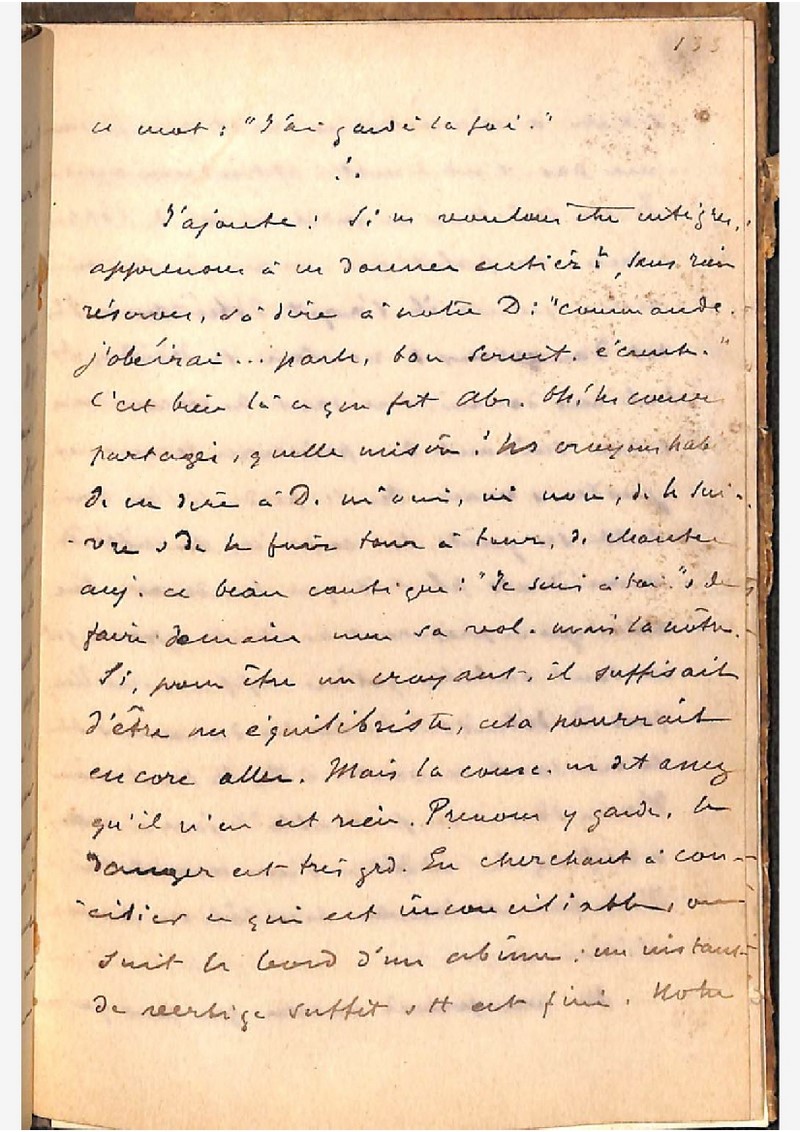 133
ce mot : "J'ai gardé la foi."
∴
J'ajoute : Si ns voulons être intègres,
apprenons à ns donner entièrt, sans rien
réserver, & à dire à notre D : "commande.
j'obéirai... parle, ton servit. écoute."
C'est bien là ce que fit Abr. Oh! les cœurs
partagés, quelle misère ! Ns croyons hab
de ne dire à D. ni oui, ni non, de le sui-
vre & de le fuir tour à tour, de chanter
auj. ce beau cantique : "Je suis à toi." & de
faire demain non sa vol. mais la nôtre.
Si, pour être un croyant, il suffisait
d'être un équilibriste, cela pourrait
encore aller. Mais la consc. ns dit assez
qu'il n'en est rien. Prenons y garde, le
danger est très grd. En cherchant à con-
cilier ce qui est inconciliable, on
suit le bord d'un abîme : un instant
de vertige suffit & tt est fini. Notre